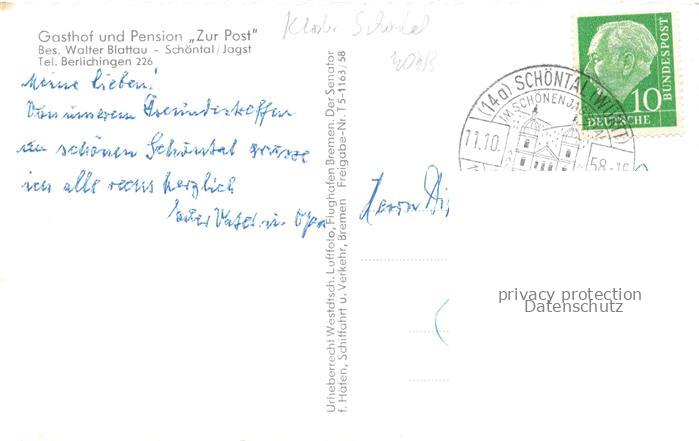 Gasthof und Pension „Zur Post"
Bes. Walter Blattau - Schöntal/Jagst
Tel. Berlichingen 226
Kloster Schöntal
Meine Lieben!
Von unserem Freundestreffen
im schönen Schöntal grüsse
ich alle recht herzlich
Euer Vater u. Opa
Urheberrecht Westdtsch. Luftfoto, Flughafen Bremen. Der Senator
f. Häfen, Schiffahrt u. Verkehr, Bremen Freigabe-Nr. T5-1163/58
10
DEUTSCHE
BUNDESPOST
(14a) SCHÖNTAL (WÜRTT)
IM SCHÖNEN
11.10.
58-16
Herrn
privacy protection
Datenschutz